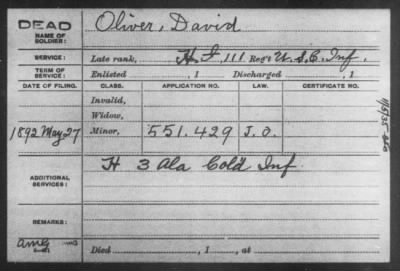 DEAD
NAME OF SOLDIER:
Oliver, David
SERVICE:
Late rank, H I, 111 Reg't U. S. C. Inf.
TERM OF SERVICE:
Enlisted , 1 Discharged , 1
DATE OF FILING. CLASS. APPLICATION NO. LAW. CERTIFICATE NO.
Invalid,
Widow,
1892 May 27 Minor, 551.429 J. O.
ADDITIONAL SERVICES:
H 3 Ala Col'd Inf.
REMARKS:
Died , 1 , at